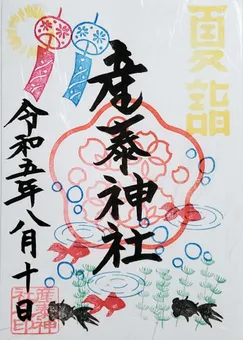 夏詣
産泰神社
令和五年八月十日
産泰神
社印